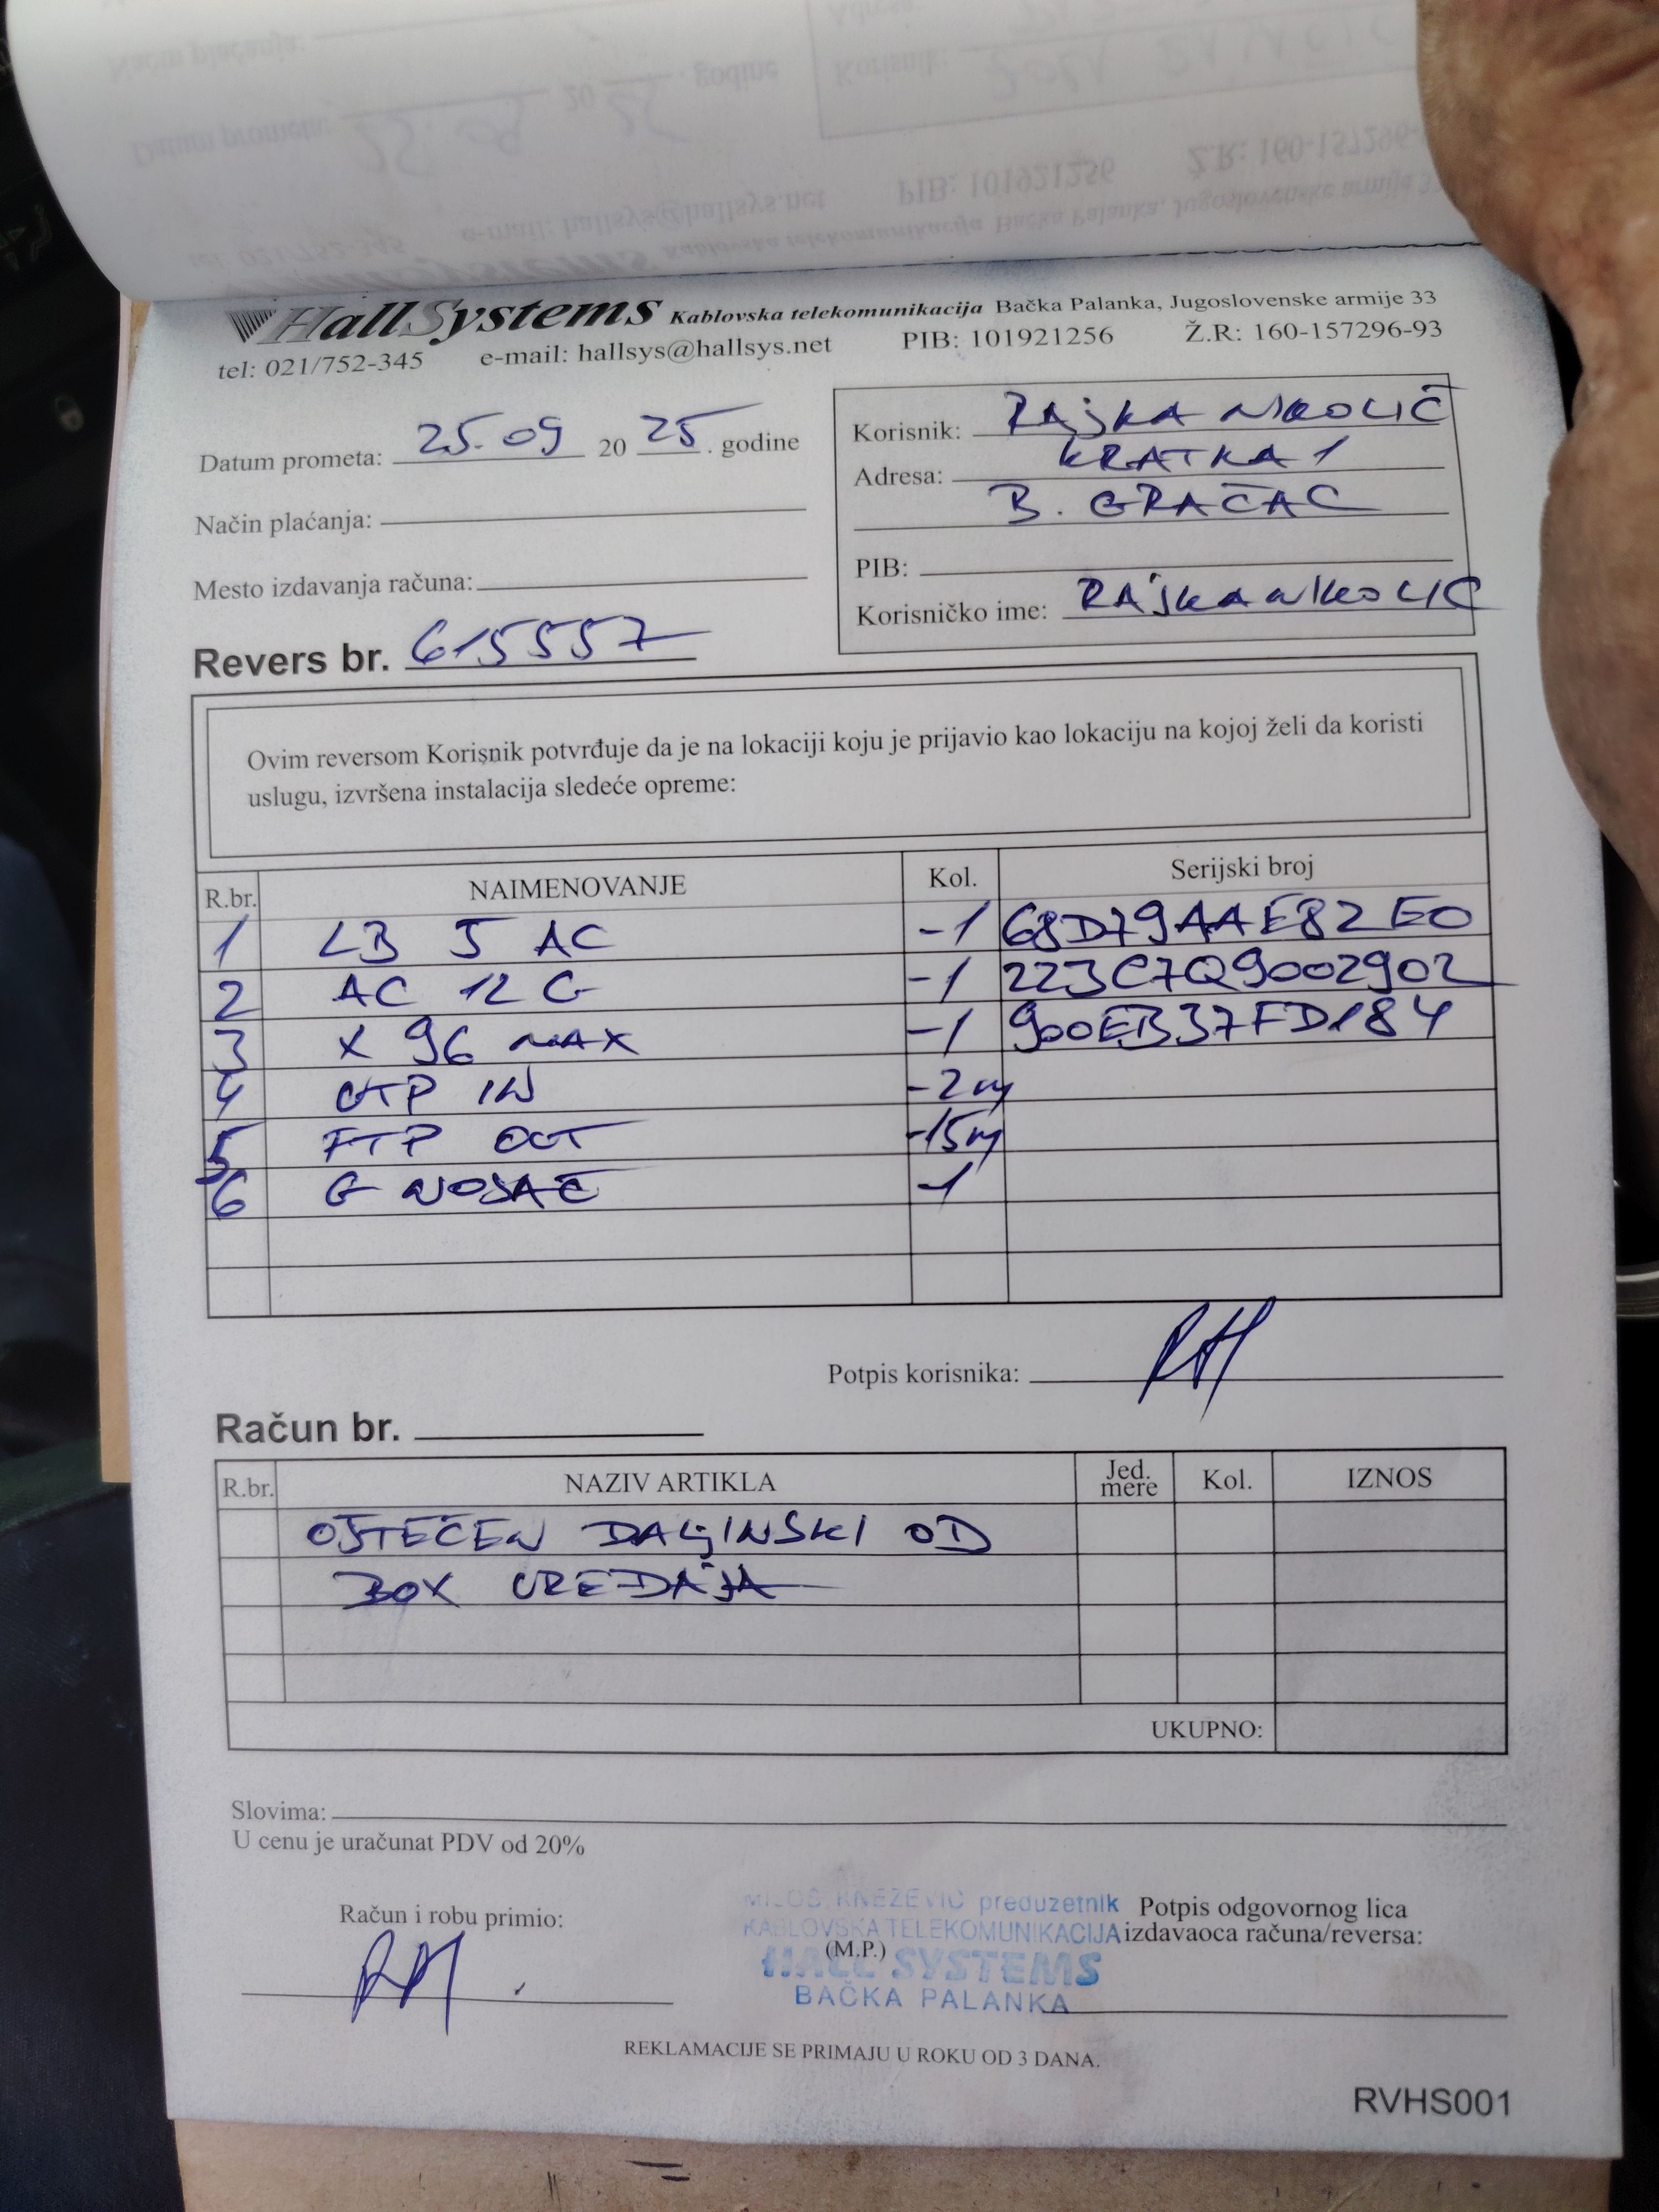 HallSystems Kablovska telekomunikacija Bačka Palanka, Jugoslovenske armije 33
tel: 021/752-345 e-mail: hallsys@hallsys.net PIB: 101921256 Ž.R: 160-157296-93
Datum prometa: 25.09 20 25. godine
Način plaćanja:
Mesto izdavanja računa:
Revers br. 615557
Korisnik: RAJKA NIKOLIĆ
Adresa: KRATKA 1
B. GRAČAC
PIB:
Korisničko ime: RAJKANIKOLIC
Ovim reversom Korisnik potvrđuje da je na lokaciji koju je prijavio kao lokaciju na kojoj želi da koristi
uslugu, izvršena instalacija sledeće opreme:
R.br. NAIMENOVANJE Kol. Serijski broj
1 LB 5 AC -1 68D79AAE82E0
2 AC 12 G -1 223C7Q9002902
3 X 96 MAX -1 900EB37FD184
4 UTP IN -2m
5 FTP OUT -15m
6 G NOSAČ -1
Potpis korisnika:
Račun br.
R.br. NAZIV ARTIKLA Jed. mere Kol. IZNOS
OŠTEĆEN DALJINSKI OD
BOX UREĐAJA
UKUPNO:
Slovima:
U cenu je uračunat PDV od 20%
Račun i robu primio:
MILOŠ KNEŽEVIĆ preduzetnik
KABLOVSKA TELEKOMUNIKACIJA
(M.P.)
HALL SYSTEMS
BAČKA PALANKA
Potpis odgovornog lica
izdavaoca računa/reversa:
REKLAMACIJE SE PRIMAJU U ROKU OD 3 DANA.
RVHS001